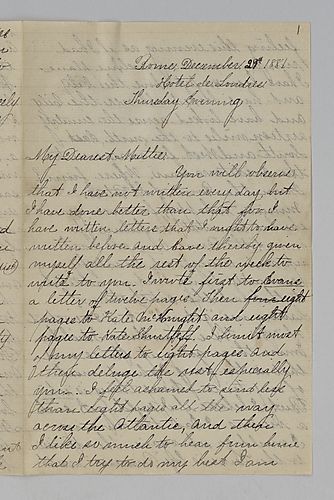 1
Rome December 29th 1881
Hotel de Londres
Thursday Evening
My Dearest Mettie
You will observe
that I have not written every day, but
I have done better than that for I
have written letters that I ought to have
written before and have thereby given
myself all the rest of the week to
write to you. I wrote first to Evans
a letter of twelve pages. Then four eight
pages to Kate McKnight and eight
pages to Kate Shurtleff. I limit most
of my letters to eight pages and
I then deluge the rest, especially
you. I feel ashamed to send less
than eight pages all the way
across the Atlantic, and then
I like so much to hear from home
that I try to do my best I am